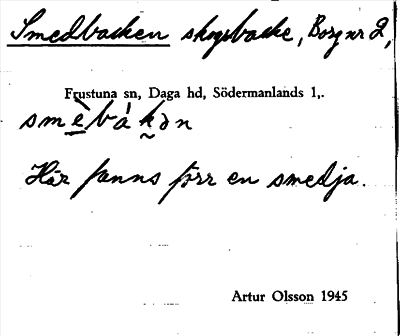 Smedbacken skogsbacke, Borg nr 2,
Frustuna sn, Daga hd, Södermanlands l,.
smèbákən
Här fanns förr en smedja.
Artur Olsson 1945